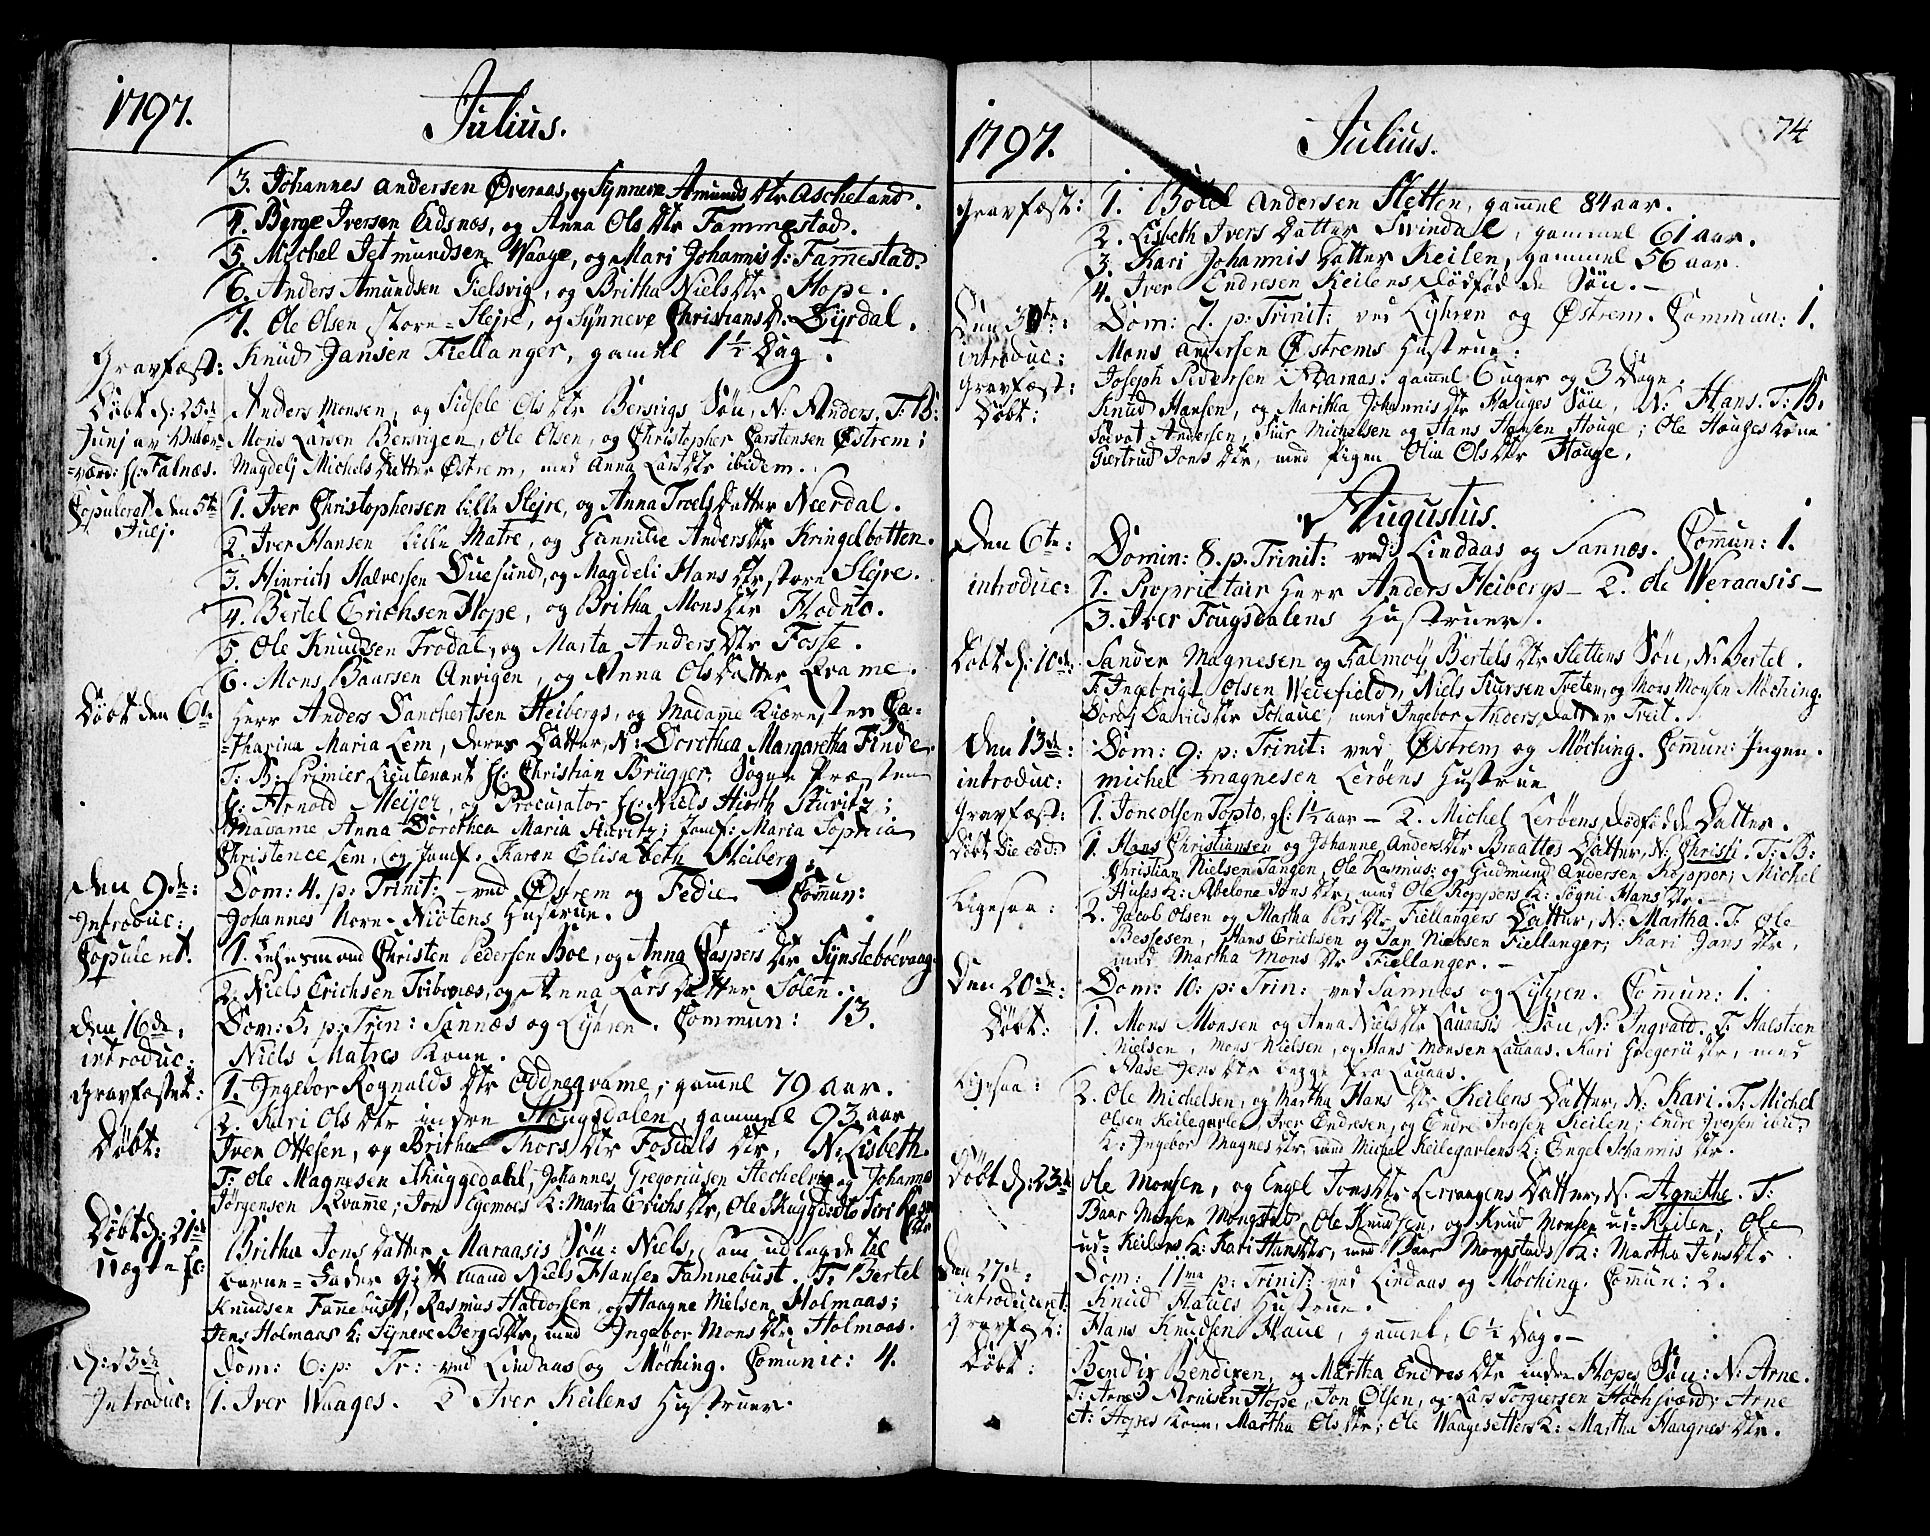 1797.
Julius.
3. Johannes Andersen Øveraas, og Synneve Amunds Dtr Ascheland.
4. Børge Iversen Edsnæs, og Anna Ols Dtr Fammestad.
5. Michel Jetmundsen Waage, og Mari Johannis D: Fam̅estad.
6. Anders Amundsen Fielsvig, og Britha Niels Dtr Hope.
7. Ole Olsen store-Slejre, og Synneve Christians D: Dyrdal.
Gravfæst: Knud Jansen Fiellanger, gamel 1½ Dag.
Døbt d: 25de Anders Monsen, og Sidsele Ols Dtr Bersvigs Søn, N: Anders. T: B:
Junj av Mons Larsen Bersvigen, Ole Olsen, og Christopher Carstensen Østrem;
Hr: Falnæs. Magdelj Michels Datter Østrem, med Anna Lars Dtr ibidem.
Copuleret den 5te 1. Iver Christophersen lille Slejre, og Anna Troels Datter Neerdal.
Julj. 2. Iver Hansen lille Matre, og Gunnilde Anders Dtr Kringelbotten.
3. Hinrich Halversen Duesund, og Magdeli Hans Dtr store Slejre.
4. Bertel Erichsen Hope, og Britha Mons Dtr Hodne.
5. Ole Knudsen Frodal, og Marta Anders Dtr Fosse.
6. Mons Baarsen Anvigen, og Anna Ols Datter Qvame.
Døbt den 6te Herr Anders Danchertsen Heibergs, og Madam̅e Kiæresten Ca-
-tharina Maria Lem, deres Datter, N: Dorothea Margaretha Finde.
T: B: Primier Lieutenant Hr: Christian Brügger, Sogne Præsten
Hr: Arnold Meijer, og Procurator Hr: Niels Hioth Sturitz;
Madame Anna Dorothea Maria Sturitz; Jomf: Maria Sophia
Christence Lem, og Jomf. Karen Elisabeth Heiberg.
den 9de: Dom: 4. p: Trinit: ved Østrem og Fedie Com̅un:
Introduc: Johannes Nore-Nictens Hustrue.
Copuleret. 1. Lehnsmand Christen Pedersen Boe, og Anna Caspers Dtr Synstebøevaag.
2. Niels Erichsen Tvibernæs, og Anna Lars Datter Solen.
den 16de: Dom: 5. p: Trin: Sannæs og Lyhren. Commun: 13.
introduc: Niels Matres Kone.
Gravfæstet: 1. Ingebor Rognalds Dtr Oddneqvame, gam̅el 79 aar.
2. Kari Ols Dtr indre Hougsdalen, gammel 93 aar
Døbt: Iver Ottesen, og Britha Thors Dtr Fosdals Dtr, N: Lisbeth.
T: Ole Magnesen Skuggedahl, Johannes Gregoriusen Hechelvig og Johanne
Jørgensen Kvam̅e; Jon Eyemoes K: Marta Erichs Dtr, Ole Skuggedals Siri
Døbt d: 21de Britha Jons Datter Maraasis Søn: Niels, som udlagde til
uægte Barne-Fader Gift mand Niels Hansen Fannebust. T: Bertel
Knudsen Fan̅ebust, Rasmus Haldorsen, og Haagne Nielsen Holmaas;
Jens Holmaas K: Synneve Berges Dtr, med Ingebor Mons Dtr Holmaas.
d: 23de Dom: 6: p: Tr: ved Lindaas og Møching. Comunic: 4.
Introduc: 1. Iver Waages. 2 Iver Keilens Hustruer.
1797.
Julius.
74
Gravfæst: 1. Botel Andersen Sletten, gam̅el 84 aar.
2. Lisbeth Ivers Datter Svindal, gammel 61 aar.
3. Kari Johannis Datter Keilen, gammel 56 aar.
4. Iver Endresen Keilens dødfødde Søn.
Den 30te: Dom: 7. p: Trinit: ved Lyhren og Østrem. Com̅un: 1.
introduc: Mons Andersen Østrems Hustrue:
Gravfæst: Joseph Pedersen Adamas: gam̅el 6 uger og 3 Dage.
Døbt: Knud Hansen, og Maritha Johannis Dtr Houges Søn, N: Hans. T: B:
Salvat Andersen, Siur Michelsen og Hans Hansen Houge; Ole Houges Kone
Giertrud Jons Dtr, med Pigen Olia Ols Dtr Houge.
Augustus.
Den 6te: Domin: 8. p: Trinit: ved Lindaas og Sannæs. Com̅un: 1.
introduc: 1. Proprietair Herr Anders Heibergs — 2. Ole Weraasis —
3. Iver Fougsdalens Hustruer.
Døbt d: 10de: Sander Magnesen og Galmøy Bertels Dtr Slettens Søn, N: Bertel.
T: Ingebrigt Olsen Weiefield, Niels Siursen Tveten, og Mons Monsen Møching.
Dordj Davids Dtr Schaue, med Ingebor Anders Datter Treit.
Den 13de: Dom: 9: p: Trinit: ved Østrem og Møching. Com̅un: Ingen.
introduc: Michel Magnesen Lerøens Hustrue
Gravfæst: 1. Jon Olsen Torsto, gl: 1½ aar — 2. Michel Lerøens dødfødde Datter.
Døbt die eod: 1. Hans Christiansen og Johanne Anders Dtr Brattes Datter, N: Christi. T: B:
Christian Nielsen Tangen, Ole Rasmus: og Gudmund Andersen Ropper; Michel
Huses K: Abelone Jons Dtr, med Ole Roppers K: Søgni Hans Dtr.
Ligesaa: 2. Jacob Olsen og Martha Pers Dtr Fiellangers Datter, N: Martha. T: Ole
Bessesen, Hans Erichsen og Jan Nielsen Fiellanger; Kari Jans Dtr,
med Martha Mons Dtr Fiellanger.
Den 20de: Dom: 10: p: Trin: ved Sannæs og Lyhren. Com̅un: 1.
Døbt: 1. Mons Monsen og Anna Niels Dtr Lauaasis Søn, N: Ingvald. T: Halsteen
Nielsen, Mons Nielsen, og Hans Monsen Lauaas. Kari Gregorii Dtr, med
Aase Jens Dtr begge fra Lauaas.
Ligesaa: 2. Ole Michelsen, og Martha Hans Dtr Keilens Datter, N: Kari. T: Michel
Olsen Keilegarlen, Iver Endresen, og Endre Iversen Keilen; Endre Iversen ibid:
K: Ingebor Magnes Dtr, med Michel Keilegarlens K: Engel Johannis Dtr.
Døbt d: 23de Ole Monsen, og Engel Jons Dtr Lervangens Datter, N. Agnethe. T:
Baar Monsen Mongstad, Ole Knudsen, og Knud Monsen ud-Keilen; Ole
ud-Keilens K: Kari Hans Dtr, med Baar Mongstads K: Martha Jens Dtr.
Den 27de: Dom: 11me p: Trinit: ved Lindaas og Møching. Com̅un: 2.
introduceret: Knud Haues Hustrue.
Gravfæst: Hans Knudsen Haue, gam̅el, 6½ Dag.
Døbt: Bendix Bendixen, og Martha Endres Dtr indre Hopes Søn: N: Arne.
T: Arne Arnesen Hope, Jon Olsen, og Lars Torgiersen Høchsvard; Arne
et: Hopes Kone, Martha Ols Dtr; Ole Waagesetters K: Martha Haagnes Dtr.